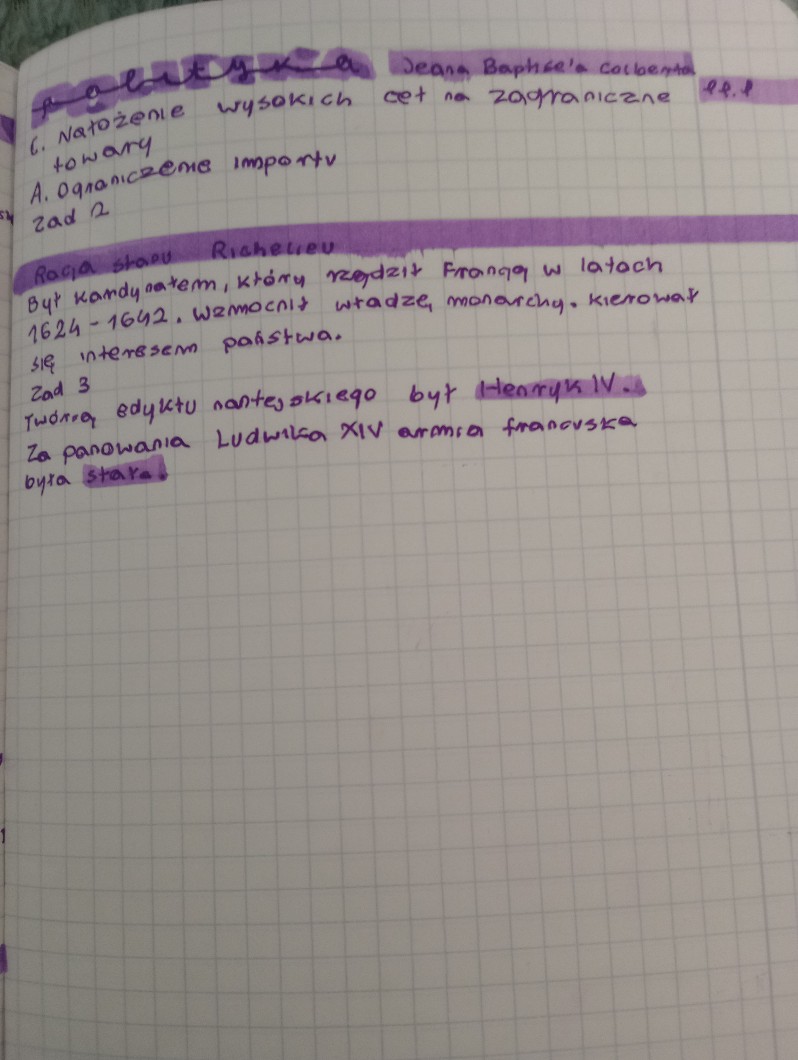 polityka Jeana Baptiste'a Colberta
C. Nałożenie wysokich ceł na zagraniczne
towary
A. Ograniczenie importu
Zad 2
Racja stanu Richelieu
Był kardynałem, który rządził Francją w latach
1624-1642. Wzmocnił władzę monarchy. Kierował
się interesem państwa.
Zad 3
Twórcą edyktu nantejskiego był Henryk IV.
Za panowania Ludwika XIV armia francuska
była stała.